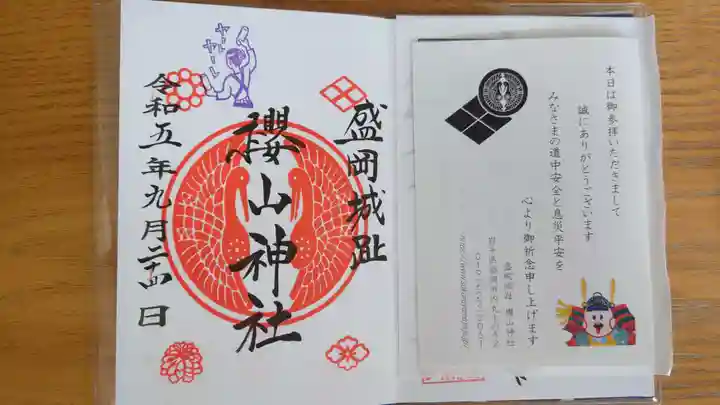 本日は御参拝いただきまして
誠にありがとうございます
みなさまの道中安全と息災平安を
心より御祈念申し上げます
盛岡城趾
櫻山神社
令和五年九月二十四日
ヤーレヤーレ